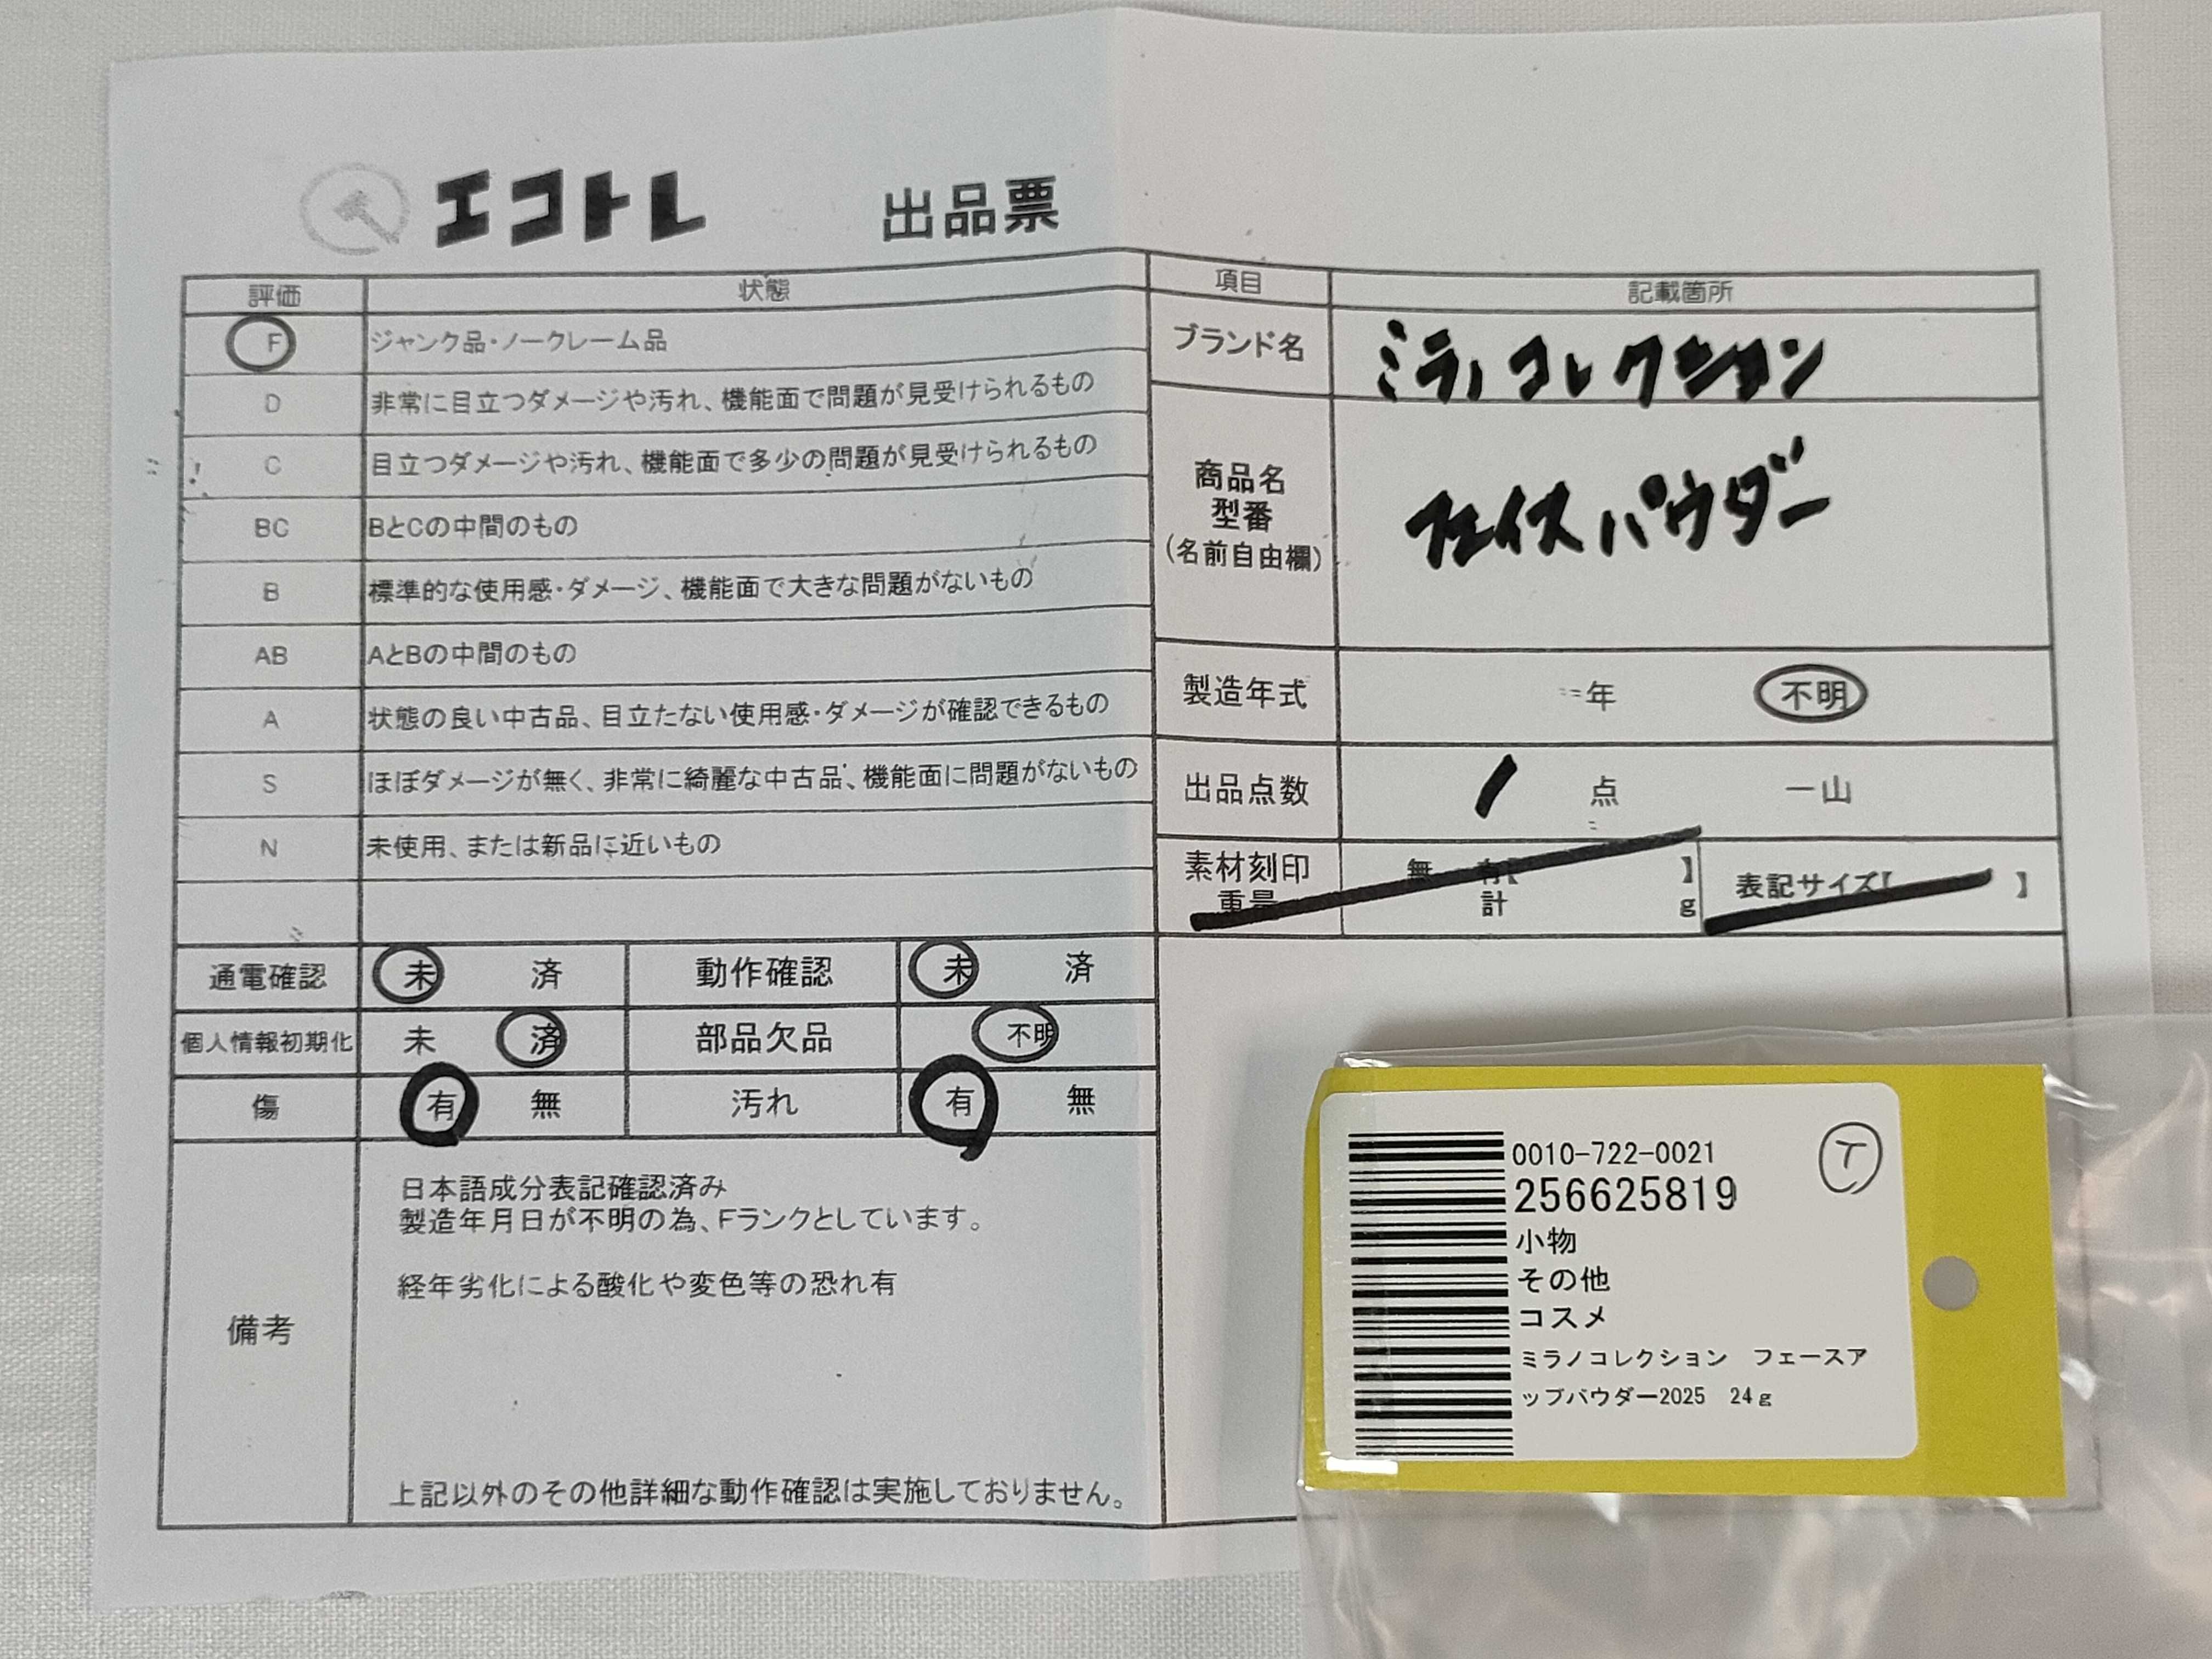 エコトレ 出品票
評価 状態
F ジャンク品・ノークレーム品
D 非常に目立つダメージや汚れ、機能面で問題が見受けられるもの
C 目立つダメージや汚れ、機能面で多少の問題が見受けられるもの
BC BとCの中間のもの
B 標準的な使用感・ダメージ、機能面で大きな問題がないもの
AB AとBの中間のもの
A 状態の良い中古品、目立たない使用感・ダメージが確認できるもの
S ほぼダメージが無く、非常に綺麗な中古品、機能面に問題がないもの
N 未使用、または新品に近いもの
項目 記載箇所
ブランド名 ミラノコレクション
商品名
型番
(名前自由欄)
フェイスパウダー
製造年式 年 不明
出品点数 1 点 一山
素材刻印 無 有【 】
重量 計 g
表記サイズ【 】
通電確認 未 済 動作確認 未 済
個人情報初期化 未 済 部品欠品 不明
傷 有 無 汚れ 有 無
備考
日本語成分表記確認済み
製造年月日が不明の為、Fランクとしています。
経年劣化による酸化や変色等の恐れ有
上記以外のその他詳細な動作確認は実施しておりません。
0010-722-0021
T
256625819
小物
その他
コスメ
ミラノコレクション フェースア
ップパウダー2025 24g